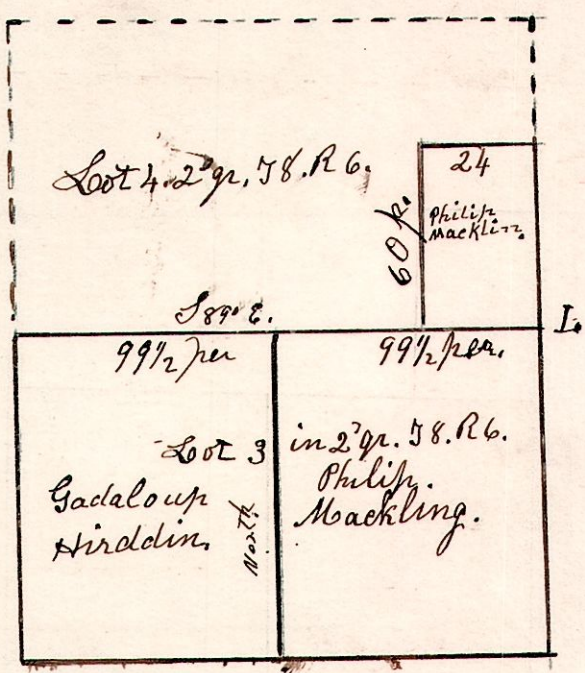 Lot 4. 2d qr. T8. R 6.
24
Philip
Macklin.
60 p.
S 89° E.
I.
99 1/2 per
99 1/2 per.
Lot 3
in 2d qr. T8. R 6.
Gadaloup
Hirddin.
North
Philip.
Mackling.